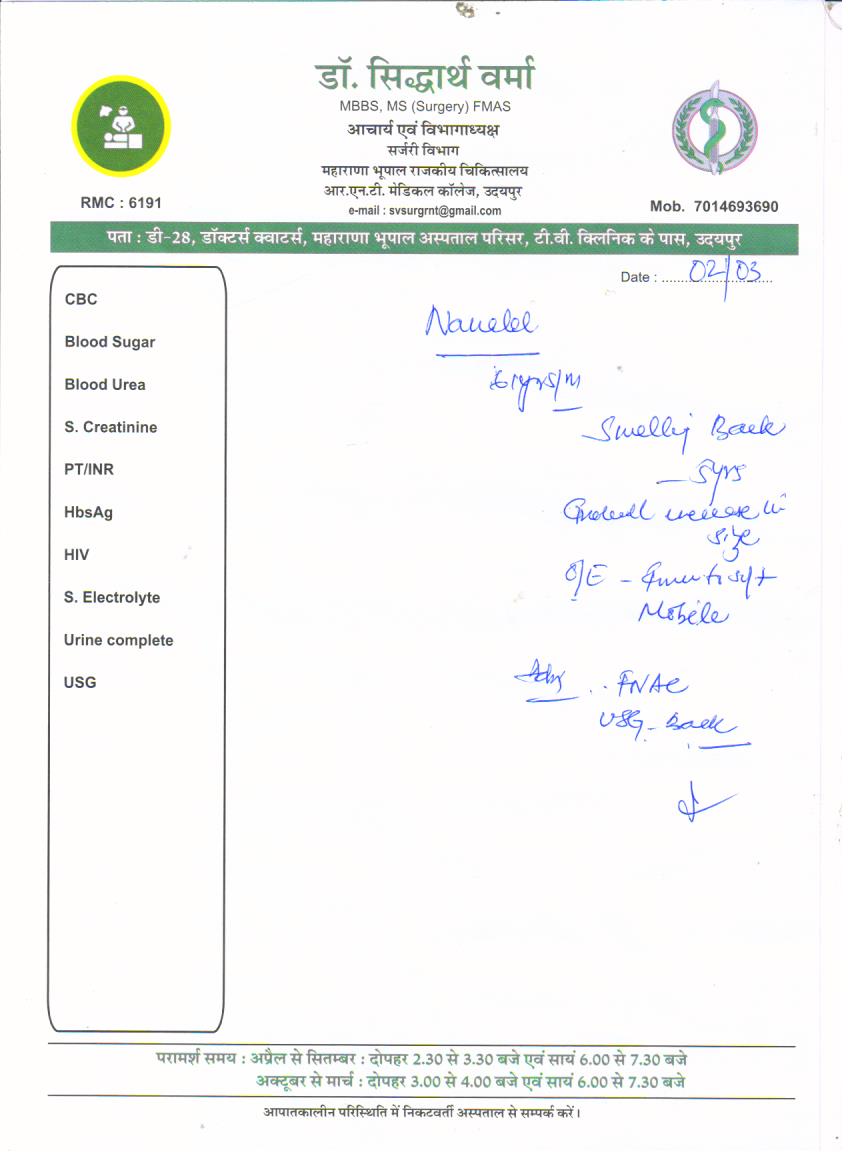 डॉ. सिद्धार्थ वर्मा
MBBS, MS (Surgery) FMAS
आचार्य एवं विभागाध्यक्ष
सर्जरी विभाग
महाराणा भूपाल राजकीय चिकित्सालय
आर.एन.टी. मेडिकल कॉलेज, उदयपुर
e-mail : svsurgrnt@gmail.com
RMC : 6191
Mob. 7014693690
पता : डी-28, डॉक्टर्स क्वाटर्स, महाराणा भूपाल अस्पताल परिसर, टी.वी. क्लिनिक के पास, उदयपुर
Date : 02/03
CBC
Blood Sugar
Blood Urea
S. Creatinine
PT/INR
HbsAg
HIV
S. Electrolyte
Urine complete
USG
61yrs/M
Swelling Back
— 5yrs
Gradual increase in
size
O/E -
Mobile
Adv FNAC
USG - Back
परामर्श समय : अप्रैल से सितम्बर : दोपहर 2.30 से 3.30 बजे एवं सायं 6.00 से 7.30 बजे
अक्टूबर से मार्च : दोपहर 3.00 से 4.00 बजे एवं सायं 6.00 से 7.30 बजे
आपातकालीन परिस्थिति में निकटवर्ती अस्पताल से सम्पर्क करें।